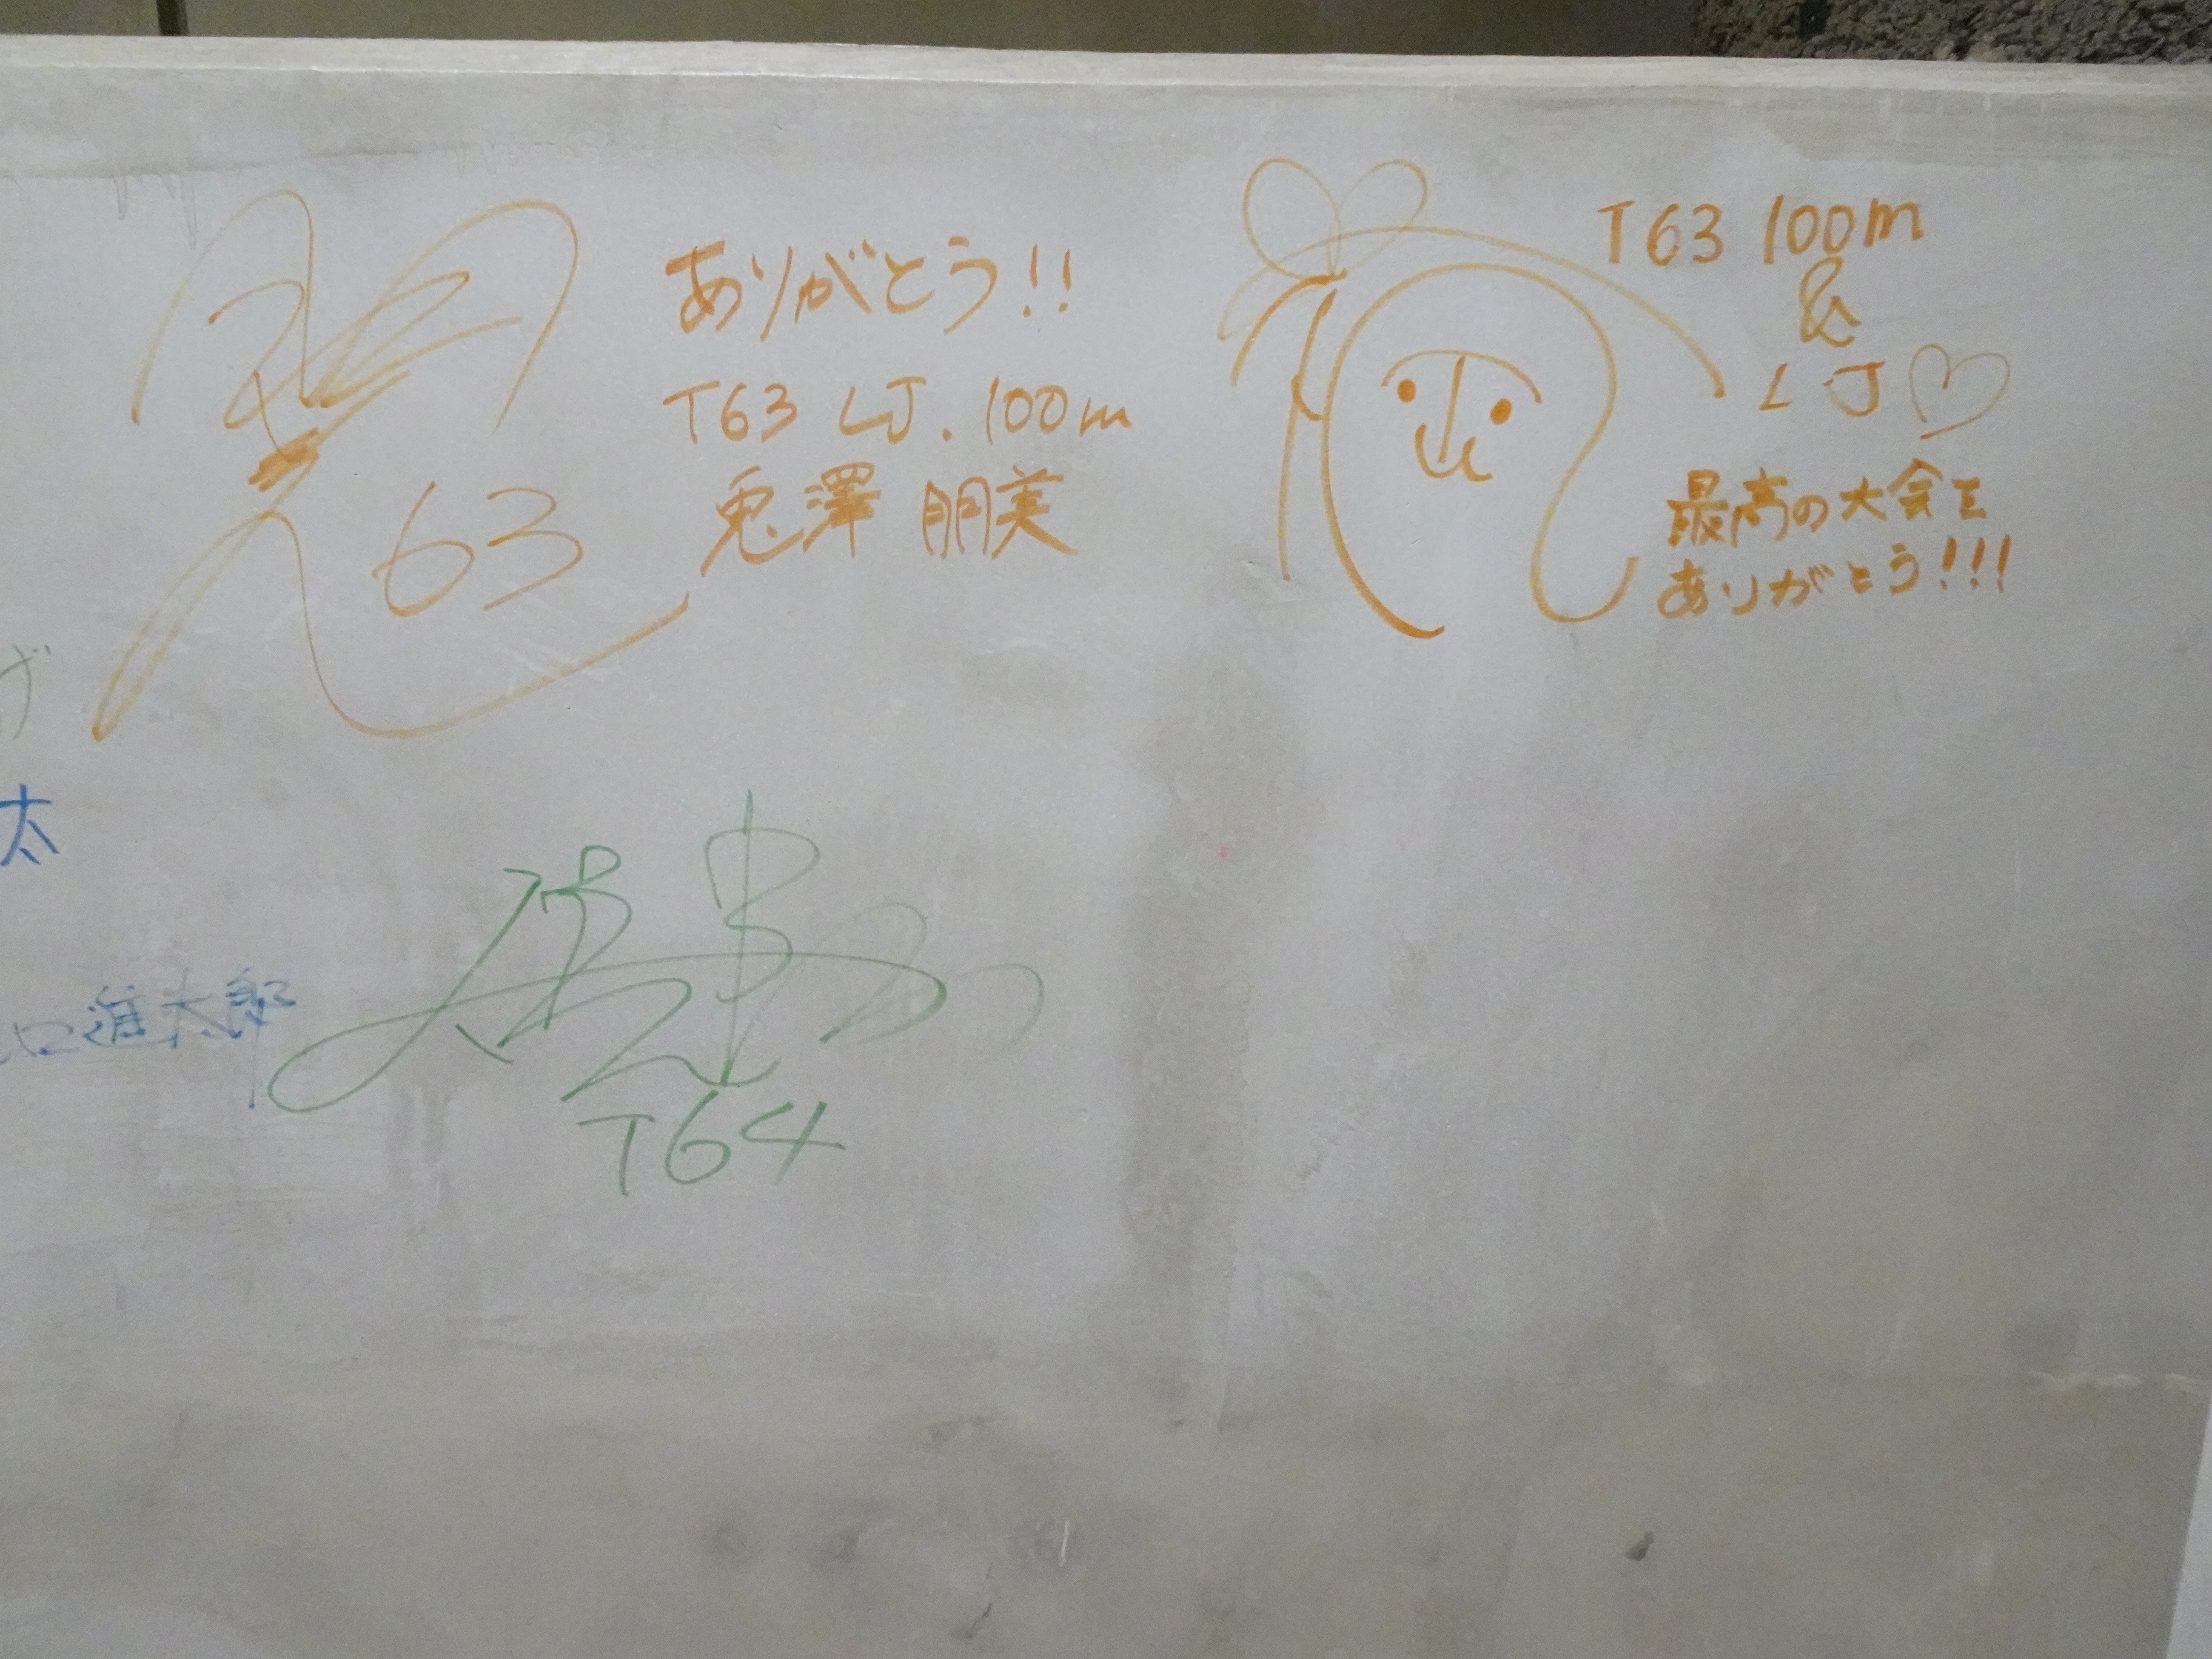 63
ありがとう!!
T63 LJ. 100m
兎澤 朋美
T63 100m
&
LJ♡
最高の大会を
ありがとう!!!
太
口進太郎
T64